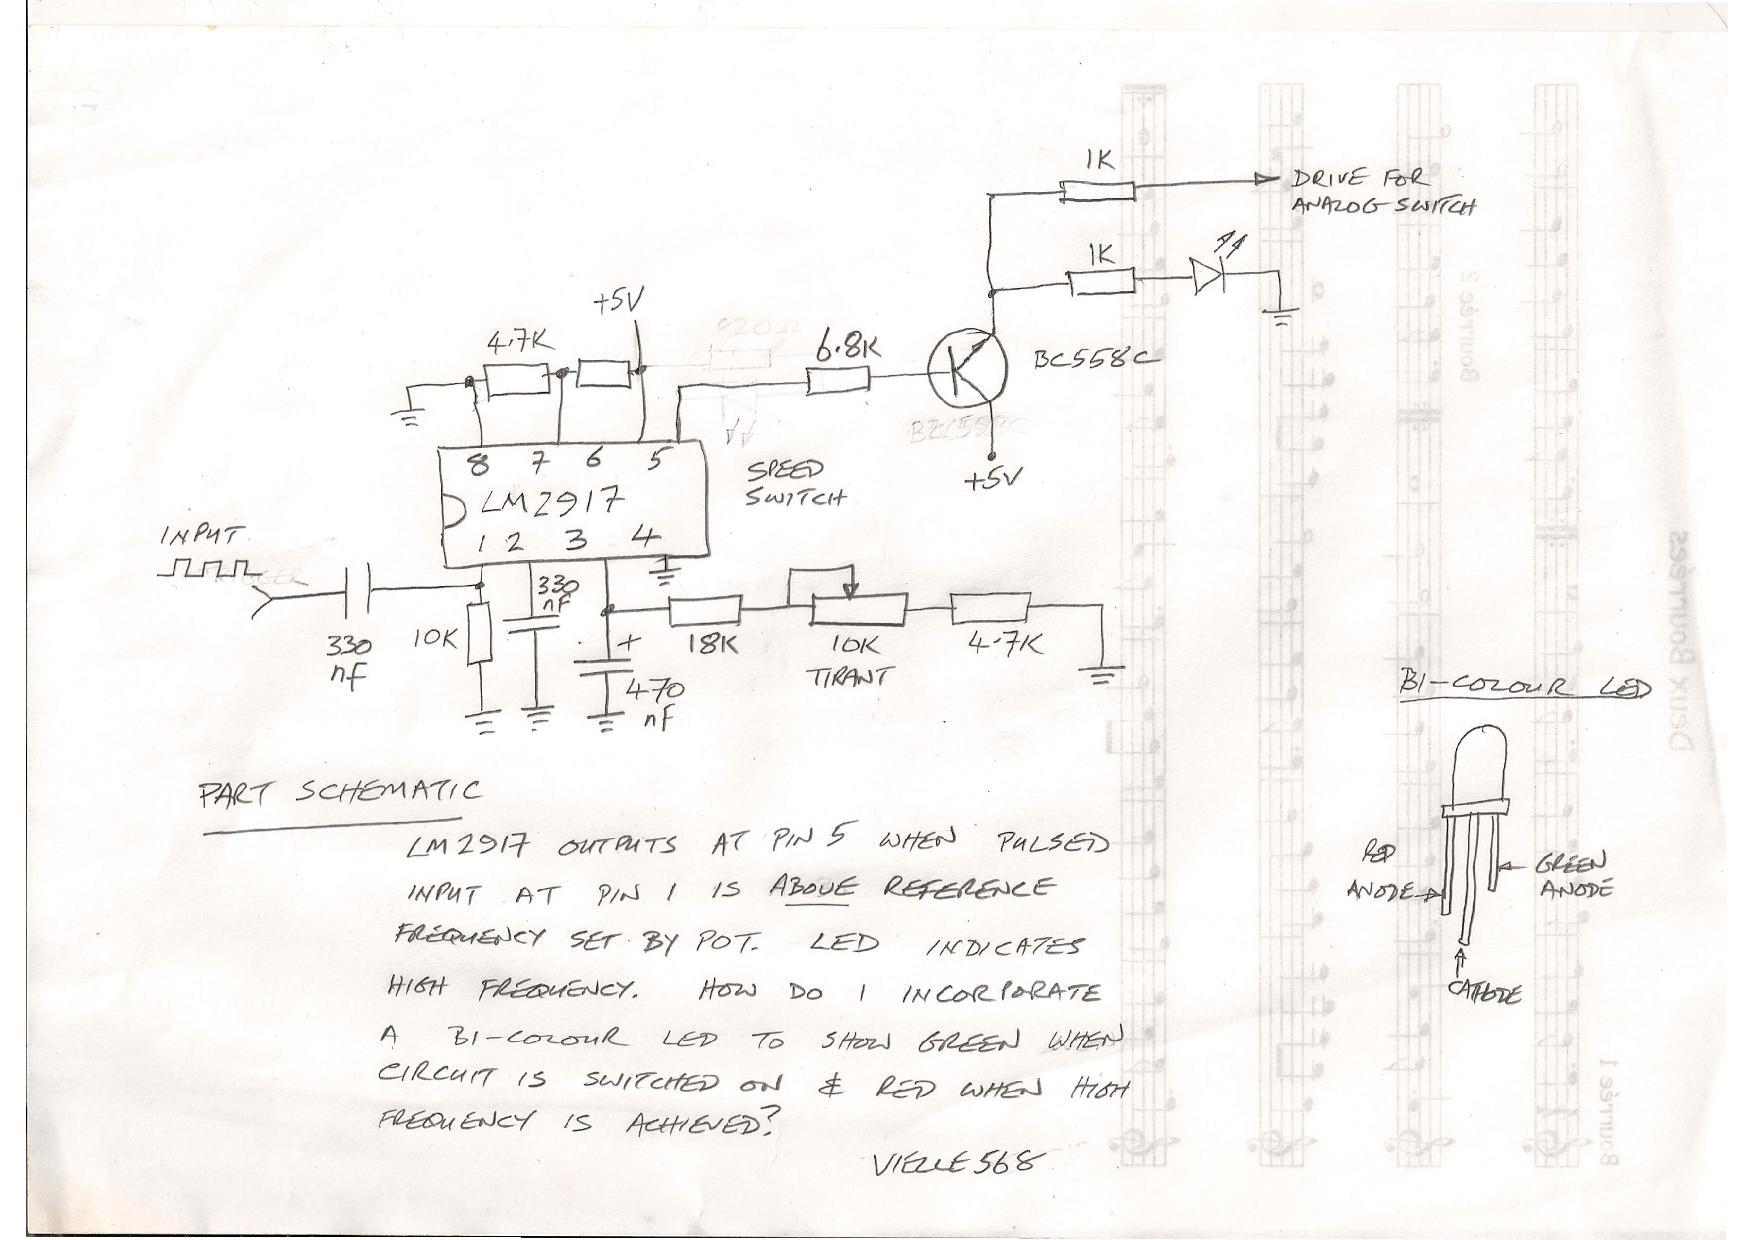 1K
DRIVE FOR
ANALOG SWITCH
1K
+5V
4.7K
820Ω
6.8K
BC558C
BC558C
+5V
8 7 6 5
LM2917
1 2 3 4
SPEED
SWITCH
INPUT
330
nf
10K
330
nF
470
nF
18K
10K
TIRANT
4.7K
BI-COLOUR LED
RED
ANODE
GREEN
ANODE
CATHODE
PART SCHEMATIC
LM2917 OUTPUTS AT PIN 5 WHEN PULSED
INPUT AT PIN 1 IS ABOVE REFERENCE
FREQUENCY SET BY POT. LED INDICATES
HIGH FREQUENCY. HOW DO I INCORPORATE
A BI-COLOUR LED TO SHOW GREEN WHEN
CIRCUIT IS SWITCHED ON & RED WHEN HIGH
FREQUENCY IS ACHIEVED?
VIELLE568
Deux Bourrées
Bourrée 2
Bourrée 1